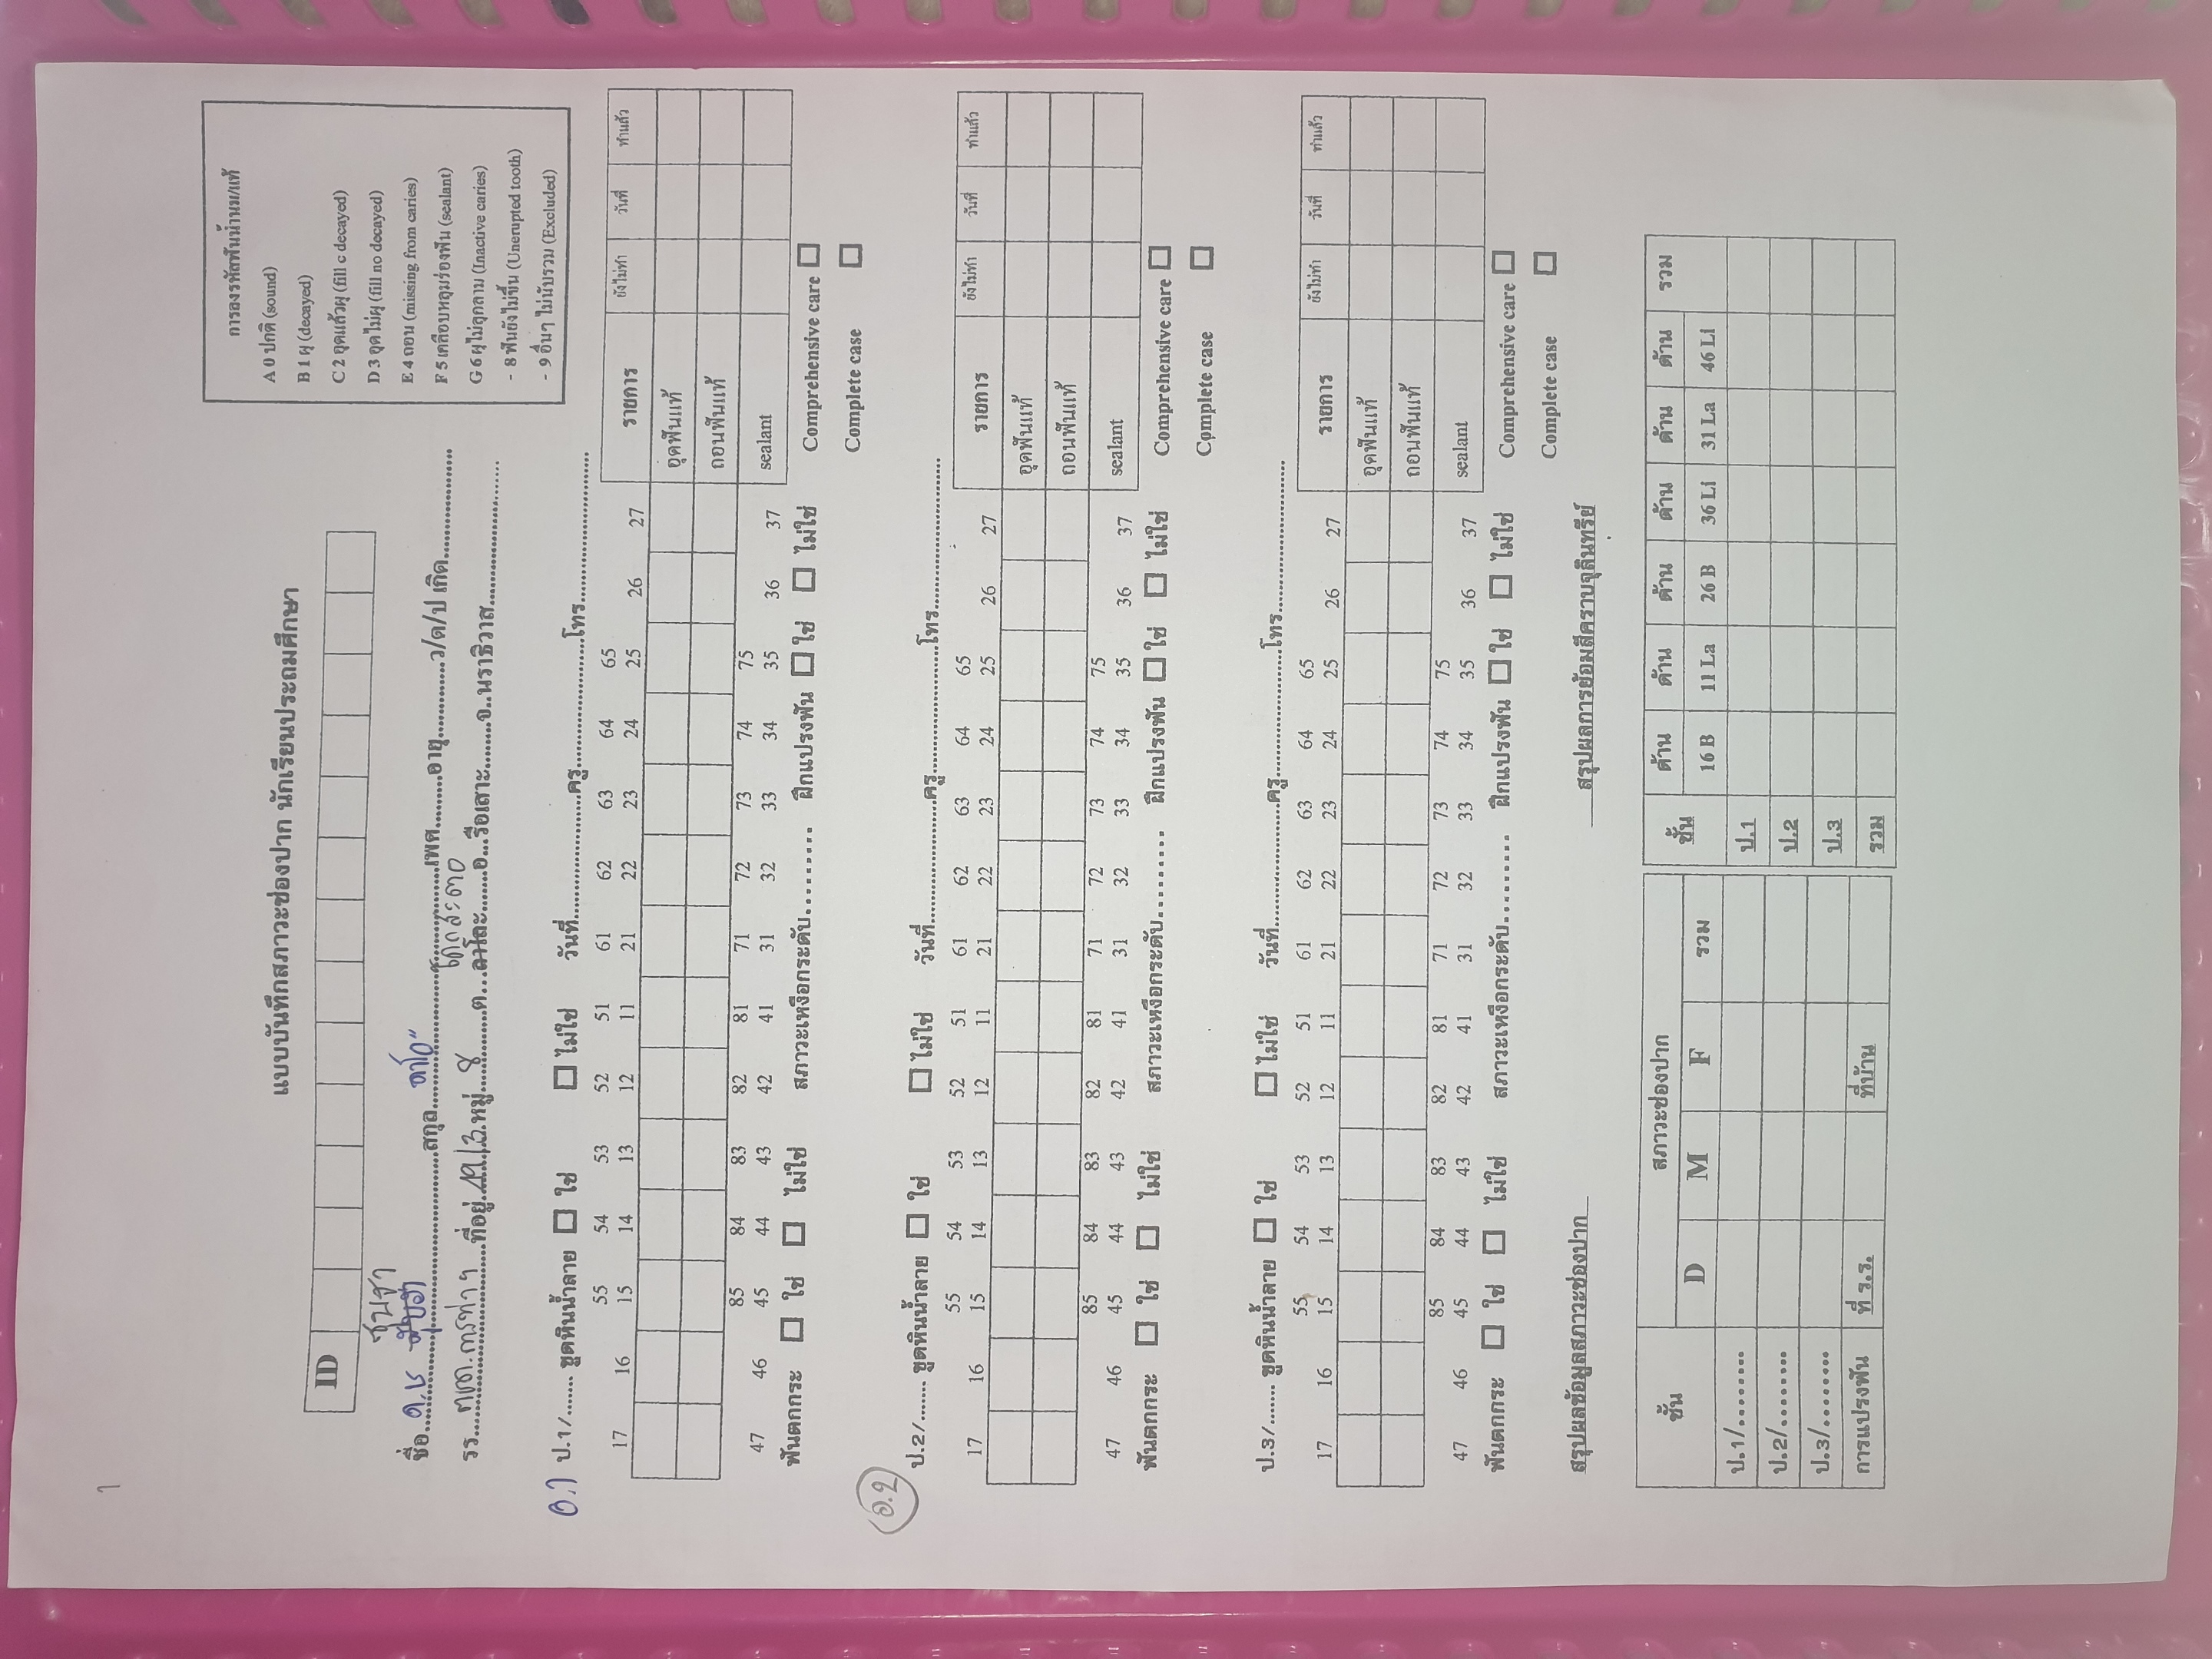 1
แบบบันทึกสภาวะช่องปาก นักเรียนประถมศึกษา
ID
การลงรหัสฟันน้ำนม/แท้
A 0 ปกติ (sound)
B 1 ผุ (decayed)
C 2 อุดแล้วผุ (fill c decayed)
D 3 อุดไม่ผุ (fill no decayed)
E 4 ถอน (missing from caries)
F 5 เคลือบหลุมร่องฟัน (sealant)
G 6 ผุไม่ลุกลาม (Inactive caries)
- 8 ฟันยังไม่ขึ้น (Unerupted tooth)
- 9 อื่นๆ ไม่นับรวม (Excluded)
ชื่อ...ด.ช...สกุล...เพศ...อายุ...ว/ด/ป เกิด...
รร...ที่อยู่...19/3.หมู่...8...ต...ลาโละ...อ...รือเสาะ...จ..นราธิวาส...
อ.1 ป.1/....... ขูดหินน้ำลาย ☐ ใช่ ☐ ไม่ใช่ วันที่...ครู...โทร...
55 54 53 52 51 61 62 63 64 65
17 16 15 14 13 12 11 21 22 23 24 25 26 27
85 84 83 82 81 71 72 73 74 75
47 46 45 44 43 42 41 31 32 33 34 35 36 37
ฟันตกกระ ☐ ใช่ ☐ ไม่ใช่ สภาวะเหงือกระดับ......... ฝึกแปรงฟัน ☐ ใช่ ☐ ไม่ใช่
รายการ ยังไม่ทำ วันที่ ทำแล้ว
อุดฟันแท้
ถอนฟันแท้
sealant
Comprehensive care ☐
Complete case ☐
อ.2 ป.2/....... ขูดหินน้ำลาย ☐ ใช่ ☐ ไม่ใช่ วันที่...ครู...โทร...
55 54 53 52 51 61 62 63 64 65
17 16 15 14 13 12 11 21 22 23 24 25 26 27
85 84 83 82 81 71 72 73 74 75
47 46 45 44 43 42 41 31 32 33 34 35 36 37
ฟันตกกระ ☐ ใช่ ☐ ไม่ใช่ สภาวะเหงือกระดับ......... ฝึกแปรงฟัน ☐ ใช่ ☐ ไม่ใช่
รายการ ยังไม่ทำ วันที่ ทำแล้ว
อุดฟันแท้
ถอนฟันแท้
sealant
Comprehensive care ☐
Complete case ☐
ป.3/....... ขูดหินน้ำลาย ☐ ใช่ ☐ ไม่ใช่ วันที่...ครู...โทร...
55 54 53 52 51 61 62 63 64 65
17 16 15 14 13 12 11 21 22 23 24 25 26 27
85 84 83 82 81 71 72 73 74 75
47 46 45 44 43 42 41 31 32 33 34 35 36 37
ฟันตกกระ ☐ ใช่ ☐ ไม่ใช่ สภาวะเหงือกระดับ......... ฝึกแปรงฟัน ☐ ใช่ ☐ ไม่ใช่
รายการ ยังไม่ทำ วันที่ ทำแล้ว
อุดฟันแท้
ถอนฟันแท้
sealant
Comprehensive care ☐
Complete case ☐
สรุปผลข้อมูลสภาวะช่องปาก
ชั้น สภาวะช่องปาก
D M F รวม
ป.1/........
ป.2/........
ป.3/........
การแปรงฟัน ที่ ร.ร. ที่บ้าน
สรุปผลการย้อมสีคราบจุลินทรีย์
ชั้น ด้าน ด้าน ด้าน ด้าน ด้าน ด้าน รวม
16 B 11 La 26 B 36 Li 31 La 46 Li
ป.1
ป.2
ป.3
รวม